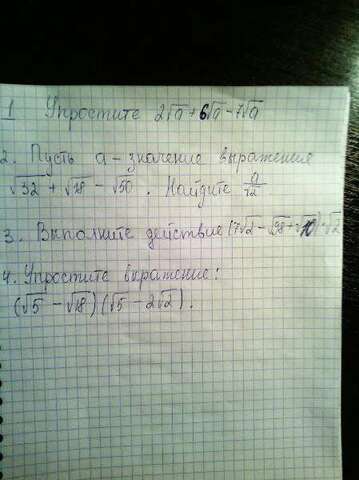 1 Упростите 2√a + 6√a - 7√a
2. Пусть a - значение выражения
√32 + √18 - √50 . Найдите a/√2
3. Выполните действие (7√2 - √98 + √10) · √2
4. Упростите выражение:
(√5 - √18)(√5 - 2√2).